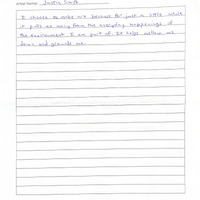 Artist Name: Justin Smith
I choose to make art because for just a little while
it pulls me away from the everyday happenings of
the environment I am part of. It helps mellow me
down and grounds me.